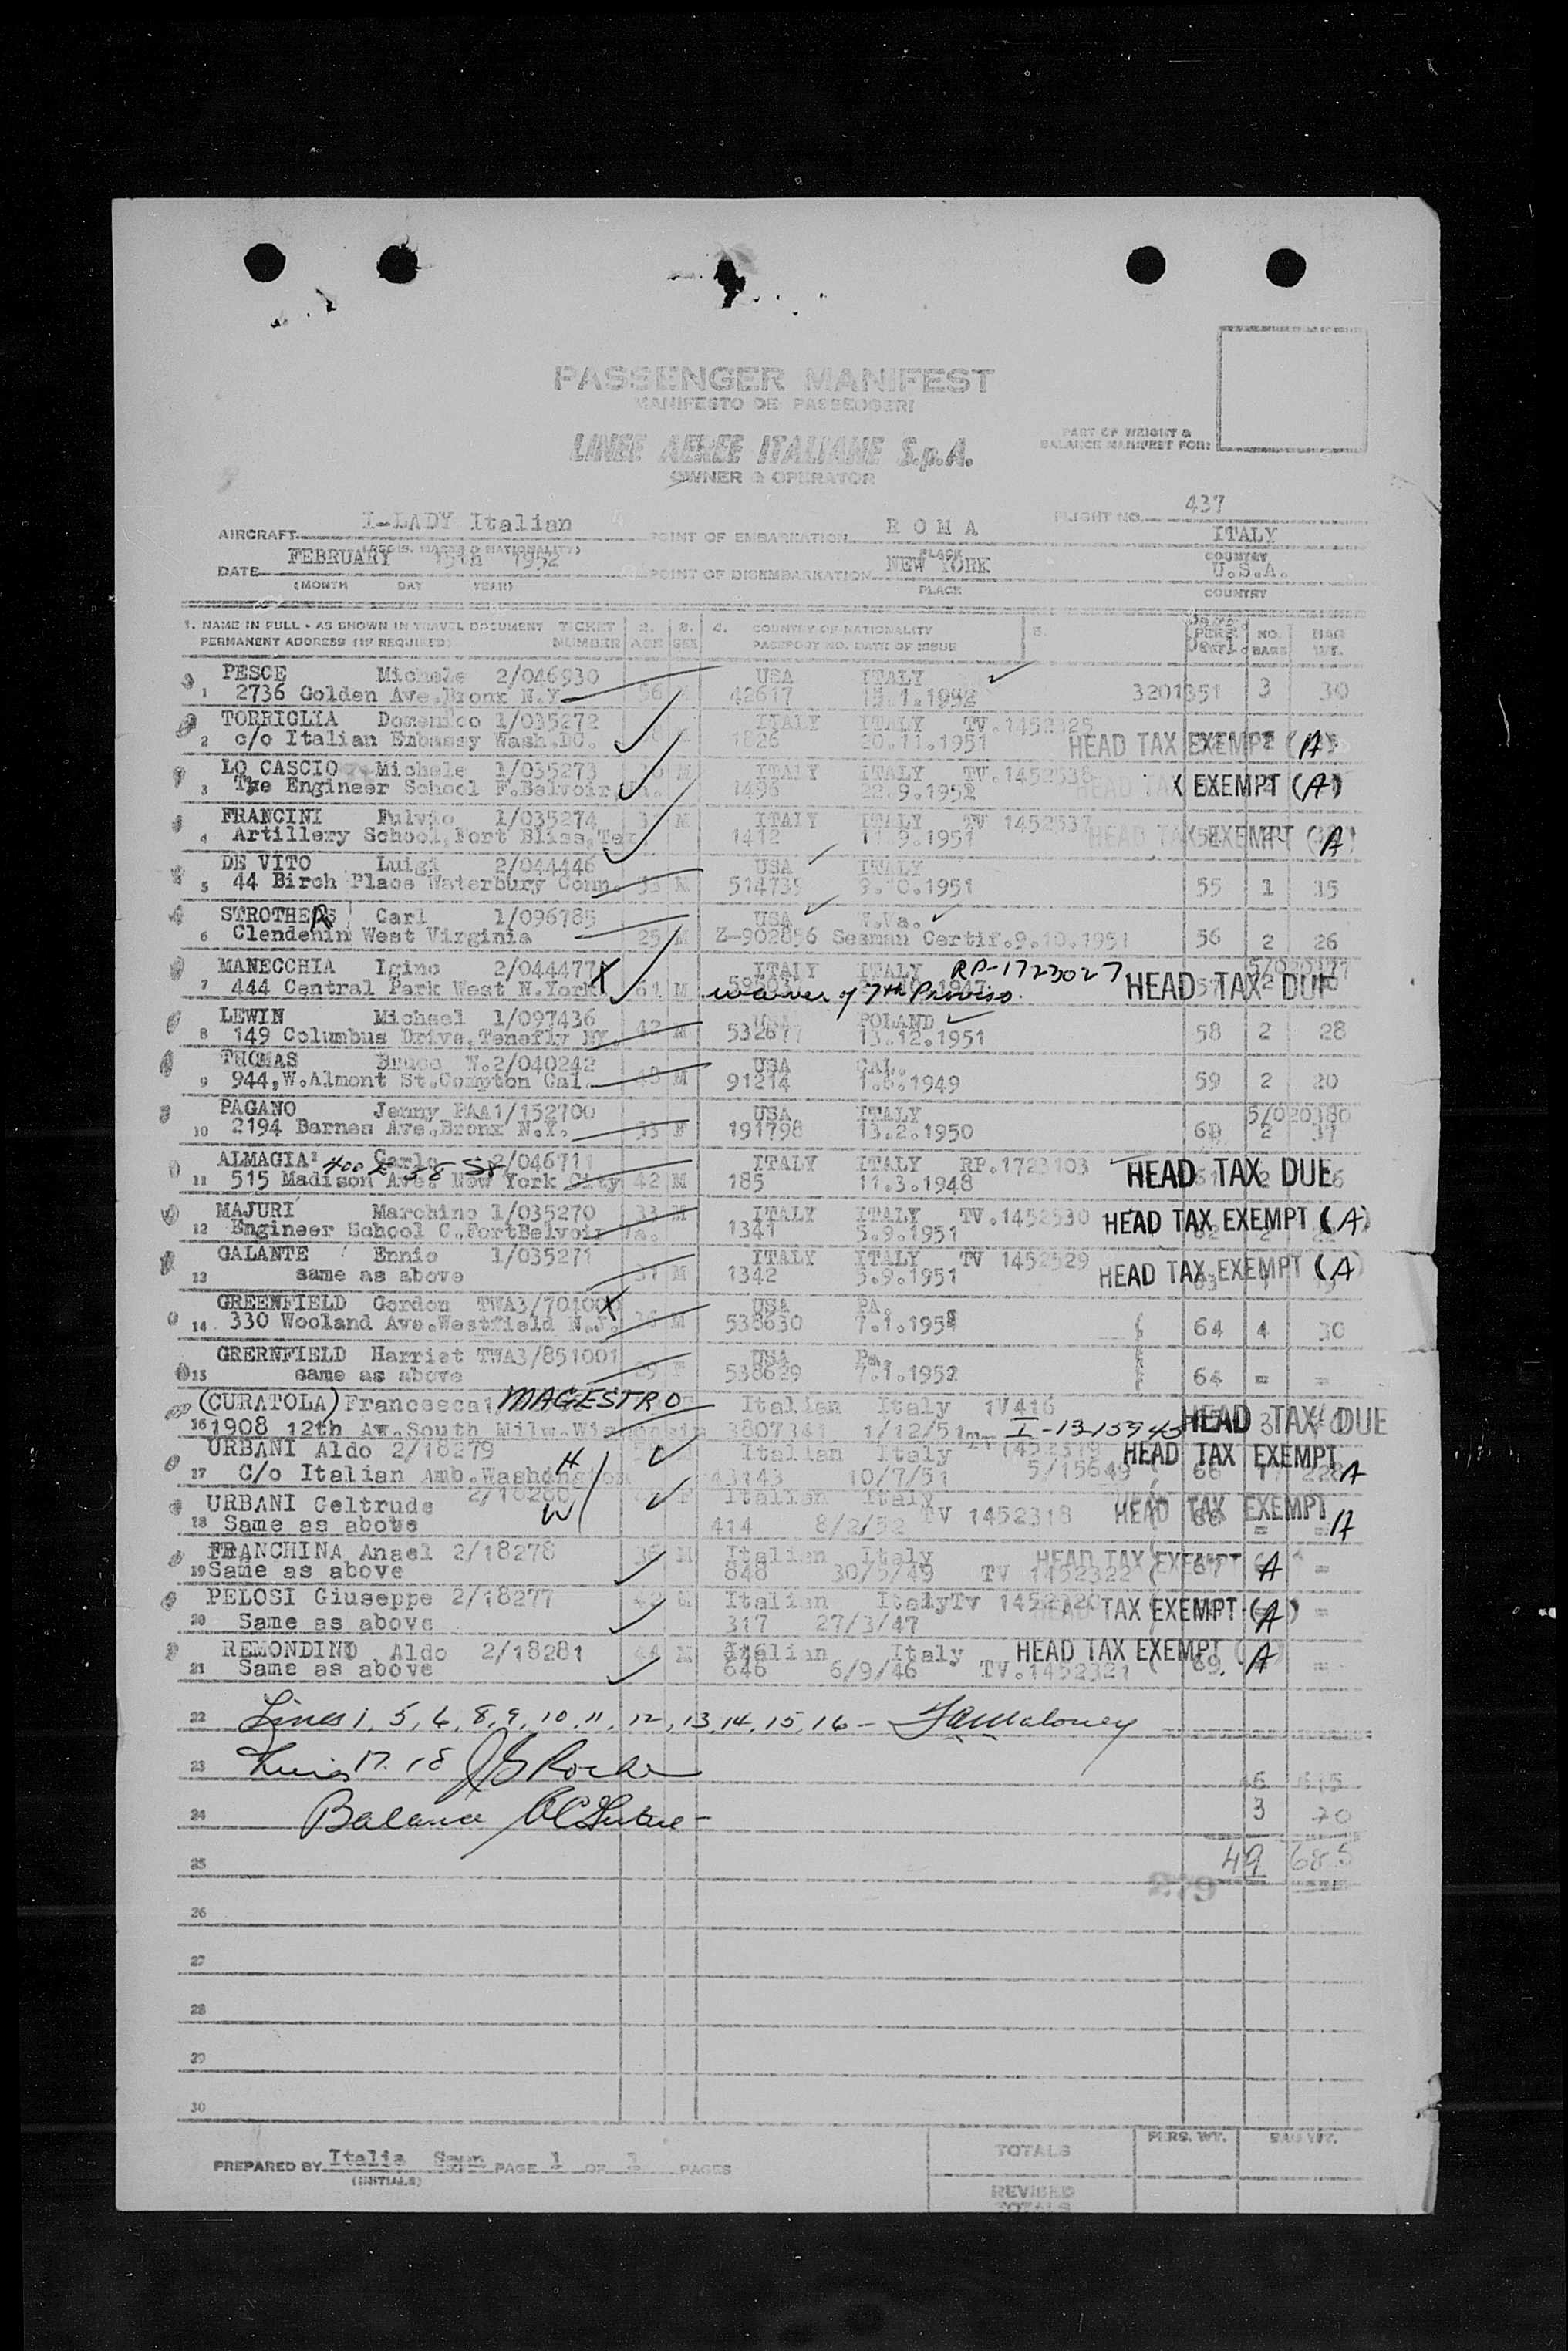 PASSENGER MANIFEST
MANIFESTO DEI PASSEGGERI
LINEE AEREE ITALIANE S.p.A.
OWNER & OPERATOR
PART OF WEIGHT &
BALANCE MANIFEST FOR:
AIRCRAFT I-LADY Italian POINT OF EMBARKATION R O M A FLIGHT NO. 437
ITALY
DATE FEBRUARY 15th 1952 POINT OF DISEMBARKATION NEW YORK U.S.A.
(MONTH DAY YEAR) PLACE COUNTRY
1. NAME IN FULL - AS SHOWN IN TRAVEL DOCUMENT TICKET 2. 3. 4. COUNTRY OF NATIONALITY 5. NO. BAG
PERMANENT ADDRESS (IF REQUIRED) NUMBER AGE SEX PASSPORT NO. DATE OF ISSUE BAGS WT.
PESCE Michele 2/046930 USA ITALY
1 2736 Golden Ave.Bronx N.Y. 56 42617 15.1.1952 3201351 3 30
TORRIGLIA Domenico 1/035272 ITALY ITALY TV.1452525
2 c/o Italian Embassy Wash.DC. 1826 20.11.1951 HEAD TAX EXEMPT (A)
LO CASCIO Michele 1/035273 M ITALY ITALY TV.1452538
3 The Engineer School F.Belvoir 1496 22.9.1951 HEAD TAX EXEMPT (A)
FRANCINI Fulvio 1/035274 M ITALY ITALY TV 1452537
4 Artillery School,Fort Bliss,Tex. 1412 9.1951 HEAD TAX EXEMPT (A)
DE VITO Luigi 2/044446 USA ITALY
5 44 Birch Place Waterbury Conn. 53 M 514739 9.10.1951 55 1 15
STROTHERS Carl 1/096785 USA W.Va.
6 Clendenin West Virginia 25 M Z-902856 Seaman Certif.9.10.1951 56 2 26
MANECCHIA Igino 2/044477 X ITALY ITALY RP-1723027
7 444 Central Park West N.York 61 M waiver of 7th Proviso. HEAD TAX DUE
LEWIN Michael 1/097436 USA POLAND
8 149 Columbus Drive,Tenefly NY. 42 M 532677 13.12.1951 58 2 28
THOMAS Bruce W.2/040242 USA CAL.
9 944,W.Almont St.Compton Cal. 48 M 91214 1.6.1949 59 2 20
PAGANO Jenny PAA1/152700 USA ITALY 5/020380
10 2194 Barnes Ave.Bronx N.Y. 33 F 191798 13.2.1950 60 2 37
ALMAGIA' Carlo 2/046711 ITALY ITALY RP.1723103
400 E 58 St
11 515 Madison Ave. New York City 42 M 185 11.3.1948 HEAD TAX DUE
MAJURI Marchino 1/035270 33 M ITALY ITALY TV.1452530
12 Engineer School C.,FortBelvoir Va. 1341 5.9.1951 HEAD TAX EXEMPT (A)
GALANTE Ennio 1/035271 ITALY ITALY TV 1452529
13 same as above 31 M 1342 5.9.1951 HEAD TAX EXEMPT (A)
GREENFIELD Gordon TWA3/701000 X USA PA.
14 330 Wooland Ave.Westfield N.J. 36 M 538630 7.1.1952 64 4 30
GRERNFIELD Harriet TWA3/851001 USA Pa.
15 same as above 29 F 538629 7.1.1952 64 = =
(CURATOLA) Francesca MAGESTRO Italian Italy 1V416
16 1908 12th Av.South Milw.Wisconsin 3807341 1/12/51 I-1315943 HEAD TAX DUE
URBANI Aldo 2/18279 H Italian Italy
17 C/o Italian Amb.Washington 43143 10/7/51 5/15649 HEAD TAX EXEMPT A
URBANI Geltrude 2/18280 W F Italian Italy
18 Same as above 414 8/2/52 TV 1452318 HEAD TAX EXEMPT A
FRANCHINA Anael 2/18278 36 M Italian Italy HEAD TAX EXEMPT A
19 Same as above 848 30/5/49 TV 1452322
PELOSI Giuseppe 2/18277 42 M Italian Italy Tv 1452320
20 Same as above 317 27/3/47 HEAD TAX EXEMPT (A)
REMONDINO Aldo 2/18281 44 M Italian Italy HEAD TAX EXEMPT A
21 Same as above 646 6/9/46 TV.1452321 69 =
22 Lines 1, 5, 6, 8, 9, 10, 11, 12, 13, 14, 15, 16 - Maloney
23 Lines 17. 18
24 Balance 3 70
25 49 685
279
26
27
28
29
30
PREPARED BY Italia PAGE 1 OF 3 PAGES TOTALS PERS. WT. BAG WT.
(INITIALS)
REVISED
TOTALS